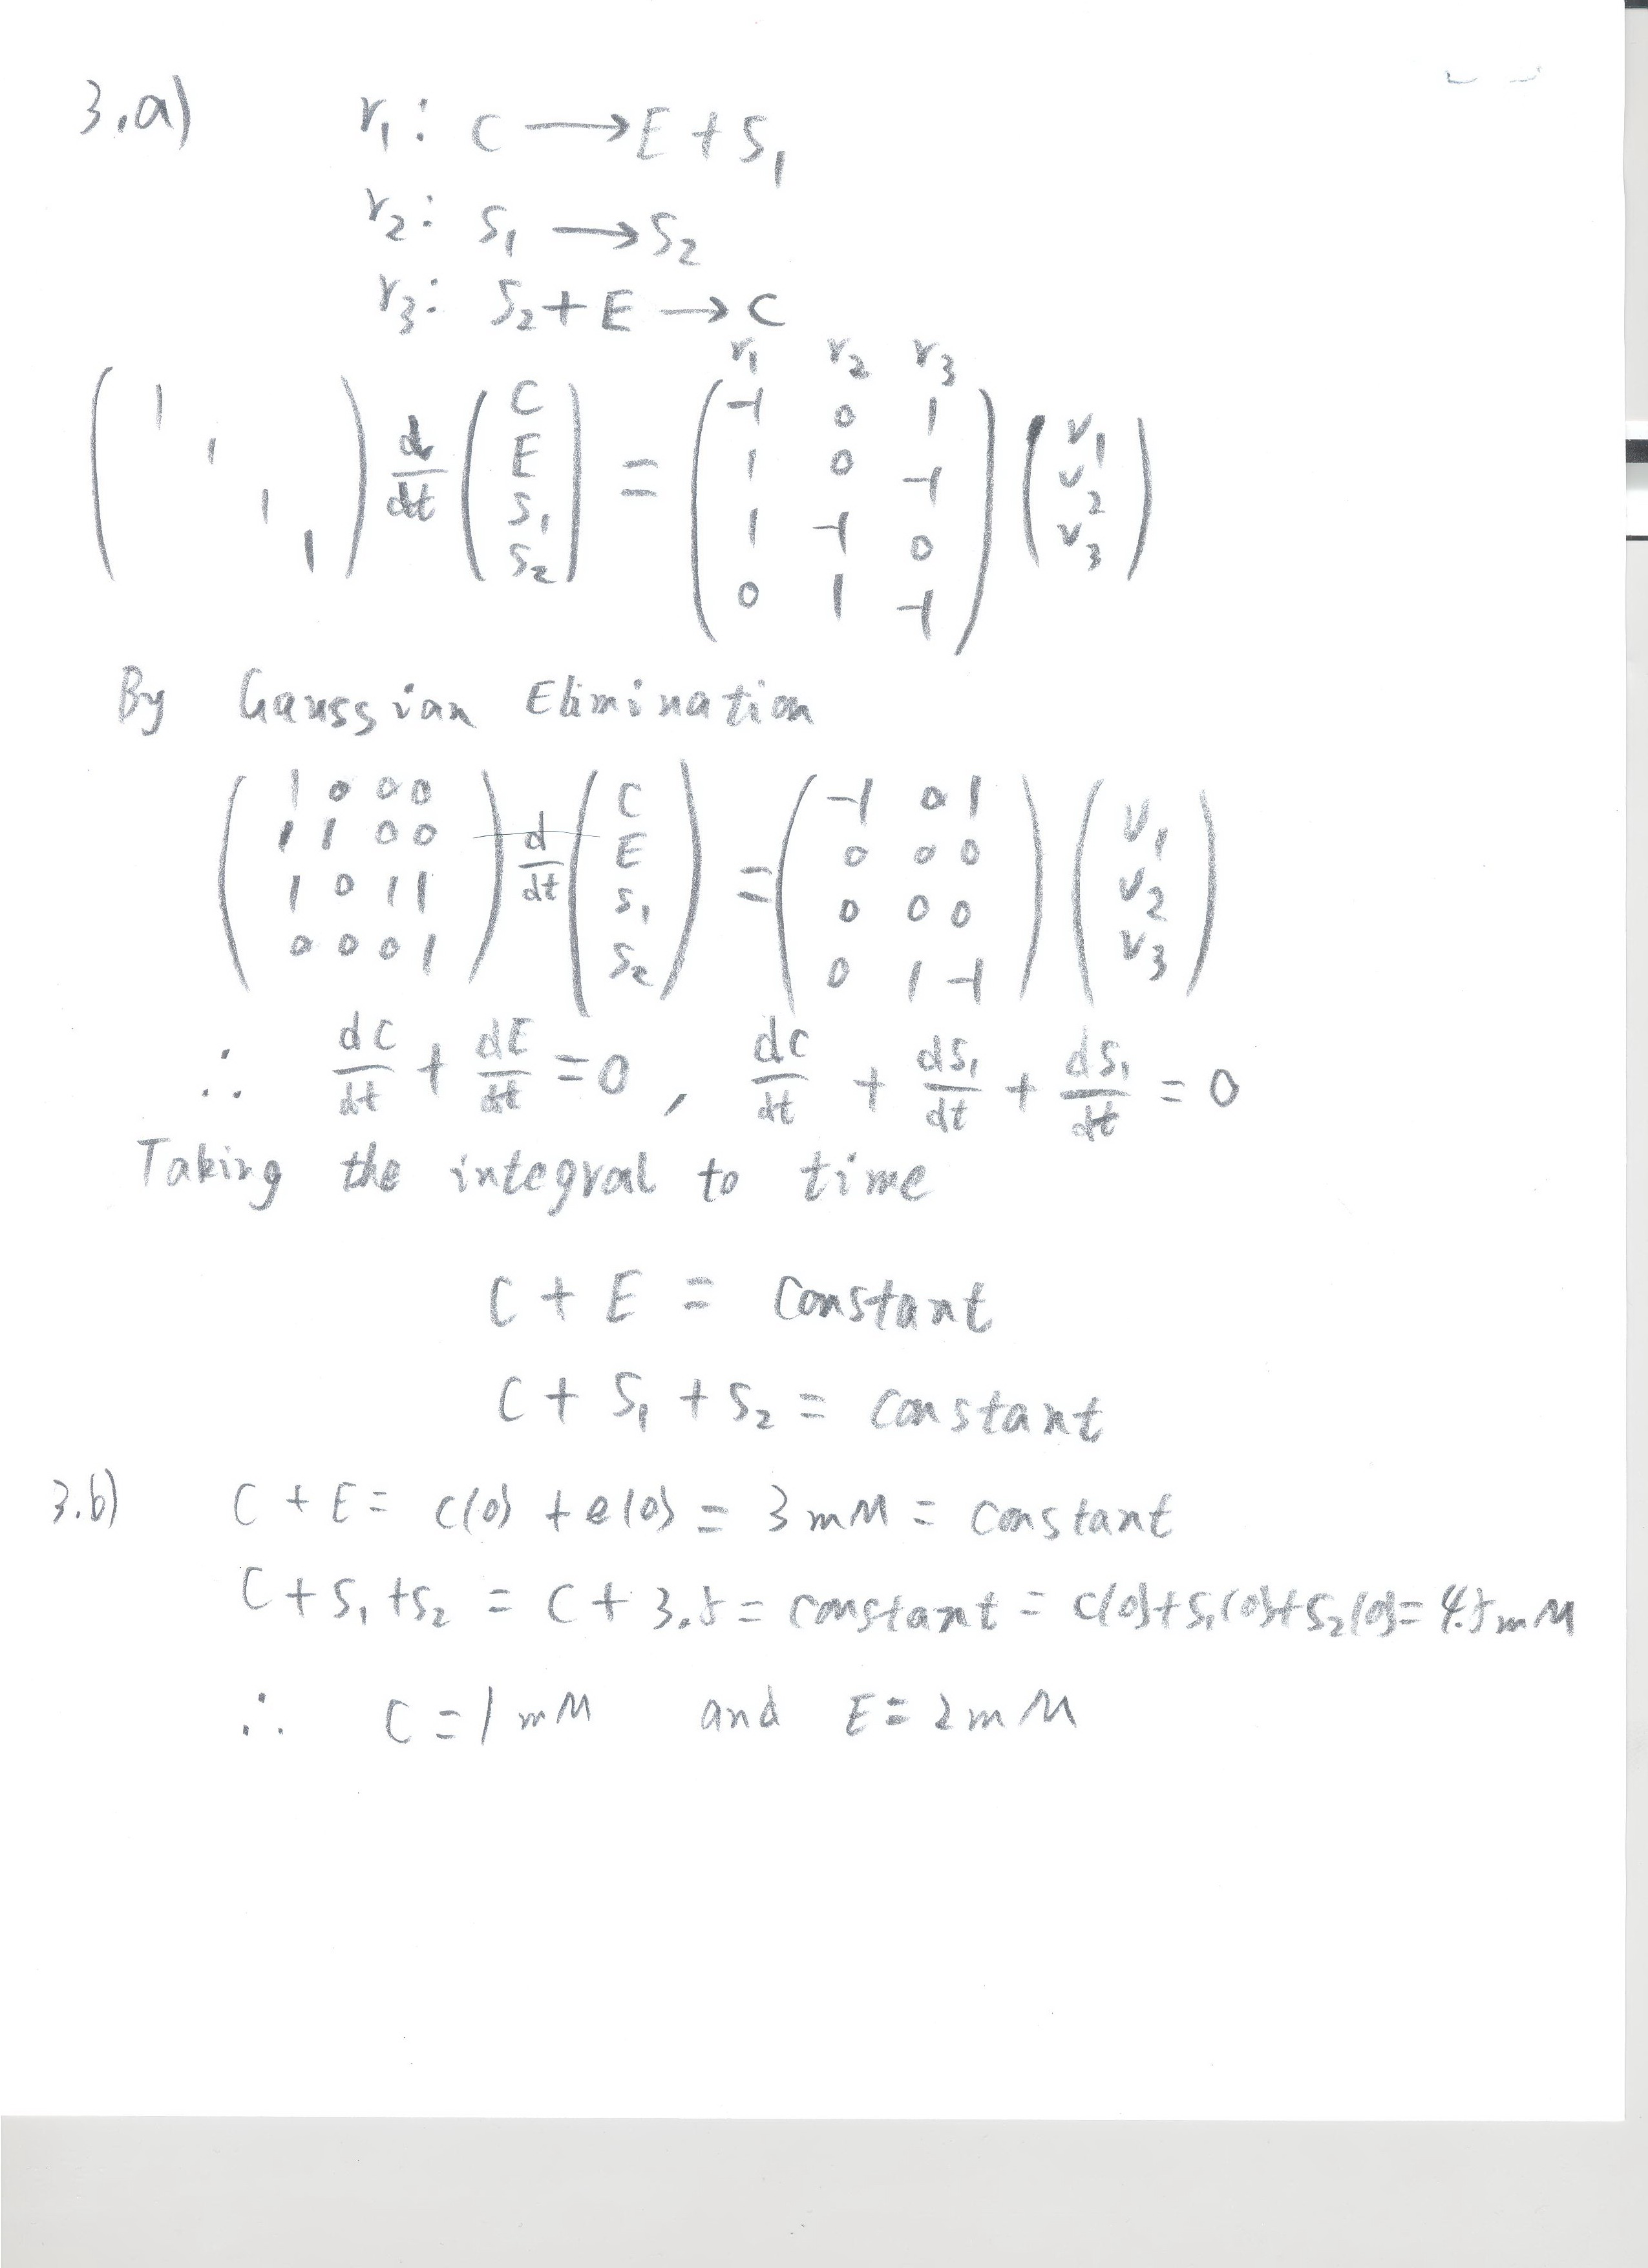 3.a) r₁: C ⟶ E + S₁
r₂: S₁ ⟶ S₂
r₃: S₂ + E → C
r₁ r₂ r₃
( 1 1 1 1 ) d/dt ( C E S₁ S₂ ) = ( -1 0 1 ; 1 0 -1 ; 1 -1 0 ; 0 1 -1 ) ( v₁ v₂ v₃ )
By Gaussian Elimination
( 1 0 0 0 ; 1 1 0 0 ; 1 0 1 1 ; 0 0 0 1 ) d/dt ( C E S₁ S₂ ) = ( -1 0 1 ; 0 0 0 ; 0 0 0 ; 0 1 -1 ) ( v₁ v₂ v₃ )
∴ dC/dt + dE/dt = 0 , dC/dt + dS₁/dt + dS₁/dt = 0
Taking the integral to time
C + E = constant
C + S₁ + S₂ = constant
3.b) C + E = c(0) + e(0) = 3 mM = constant
C + S₁ + S₂ = C + 3.5 = constant = c(0)+S₁(0)+S₂(0)= 4.5 mM
∴ C = 1 mM and E = 2 mM